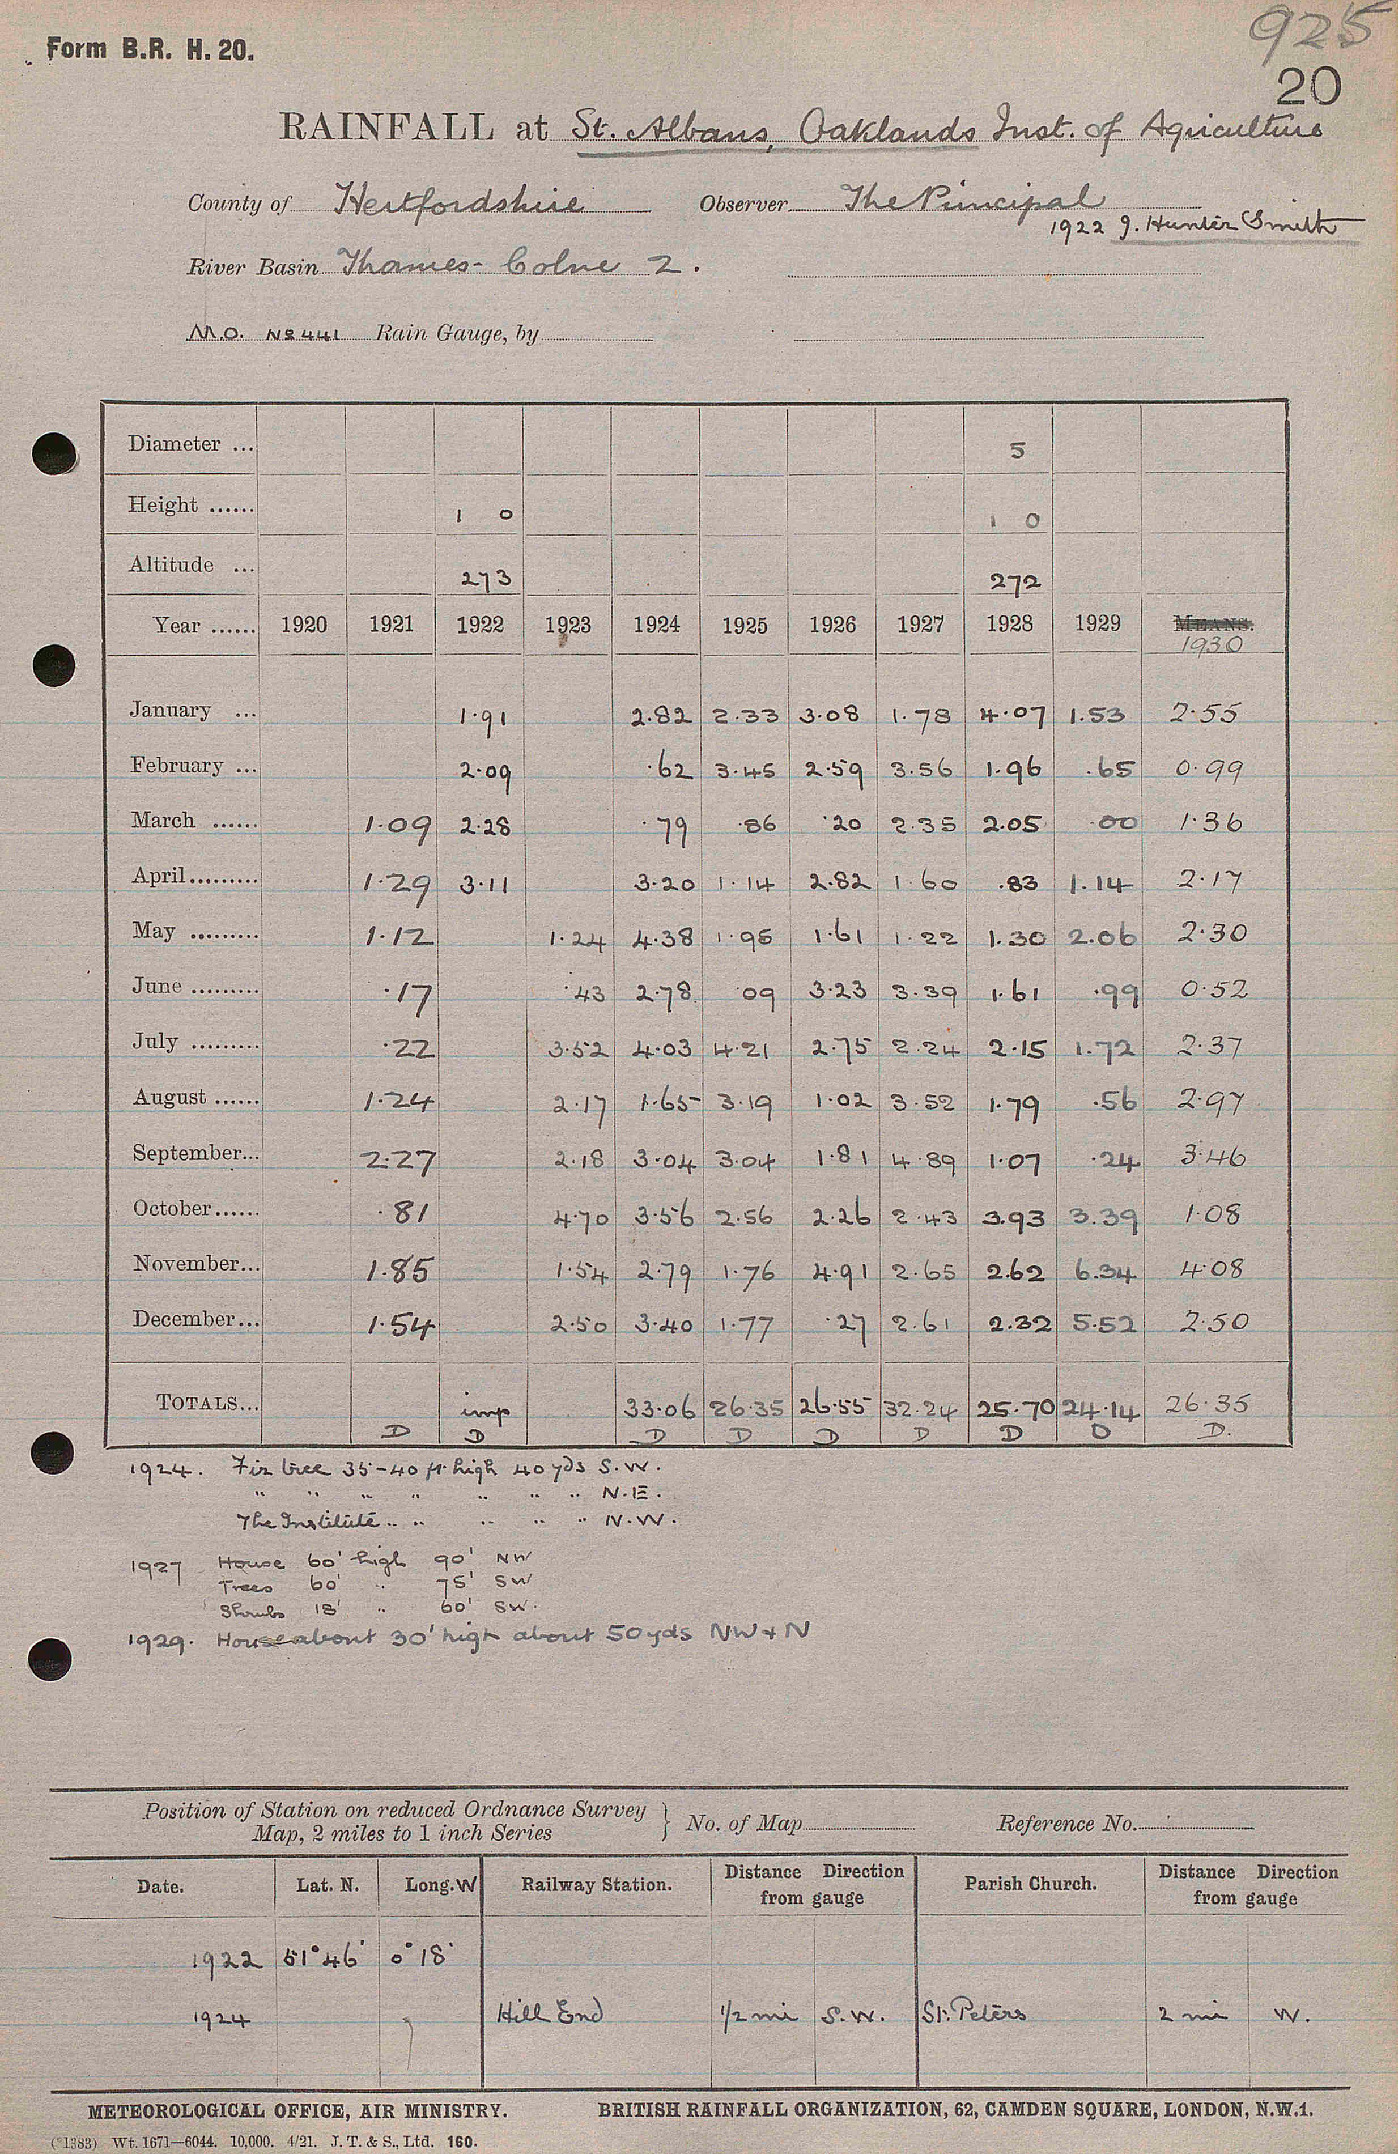 925
Form B.R. H. 20.
20
RAINFALL at St. Albans, Oaklands Inst. of Agriculture
County of Hertfordshire Observer The Principal
1922 J. Hunter Smith
River Basin Thames - Colne 2.
M.O. No 441 Rain Gauge, by
Diameter ... 5
Height ...... 1 0 1 0
Altitude ... 273 272
Year ...... 1920 1921 1922 1923 1924 1925 1926 1927 1928 1929 MEANS.
1930
January ... 1.91 2.82 2.33 3.08 1.78 4.07 1.53 2.55
February ... 2.09 .62 3.45 2.59 3.56 1.96 .65 0.99
March ...... 1.09 2.28 .79 .86 .20 2.35 2.05 .00 1.36
April......... 1.29 3.11 3.20 1.14 2.82 1.60 .83 1.14 2.17
May ......... 1.12 1.24 4.38 1.95 1.61 1.22 1.30 2.06 2.30
June ......... .17 .43 2.78 09 3.23 3.39 1.61 .99 0.52
July ......... .22 3.52 4.03 4.21 2.75 2.24 2.15 1.72 2.37
August ...... 1.24 2.17 1.65 3.19 1.02 3.52 1.79 .56 2.97
September... 2.27 2.18 3.04 3.04 1.81 4.89 1.07 .24 3.46
October...... .81 4.70 3.56 2.56 2.26 2.43 3.93 3.39 1.08
November... 1.85 1.54 2.79 1.76 4.91 2.65 2.62 6.34 4.08
December... 1.54 2.50 3.40 1.77 .27 2.61 2.32 5.52 2.50
TOTALS... imp 33.06 26.35 26.55 32.24 25.70 24.14 26.35
D D D D D D D D D.
1924. Fir tree 35-40 ft. high 40 yds S.W.
" " " " " " " N.E.
The Institute " " " " " N.W.
1927 House 60' high 90' NW
Trees 60' " 75' SW
Shrubs 18' " 60' SW.
1929. House about 30' high about 50 yds NW + N
Position of Station on reduced Ordnance Survey
Map, 2 miles to 1 inch Series } No. of Map Reference No.
Date. Lat. N. Long. W Railway Station. Distance Direction from gauge Parish Church. Distance Direction from gauge
1922 51°46' 0°18'
1924 Hill End 1/2 mi S.W. St. Peters 2 mi W.
METEOROLOGICAL OFFICE, AIR MINISTRY. BRITISH RAINFALL ORGANIZATION, 62, CAMDEN SQUARE, LONDON, N.W.1.
(*1383) Wt. 1671—6044. 10,000. 4/21. J. T. & S., Ltd. 160.